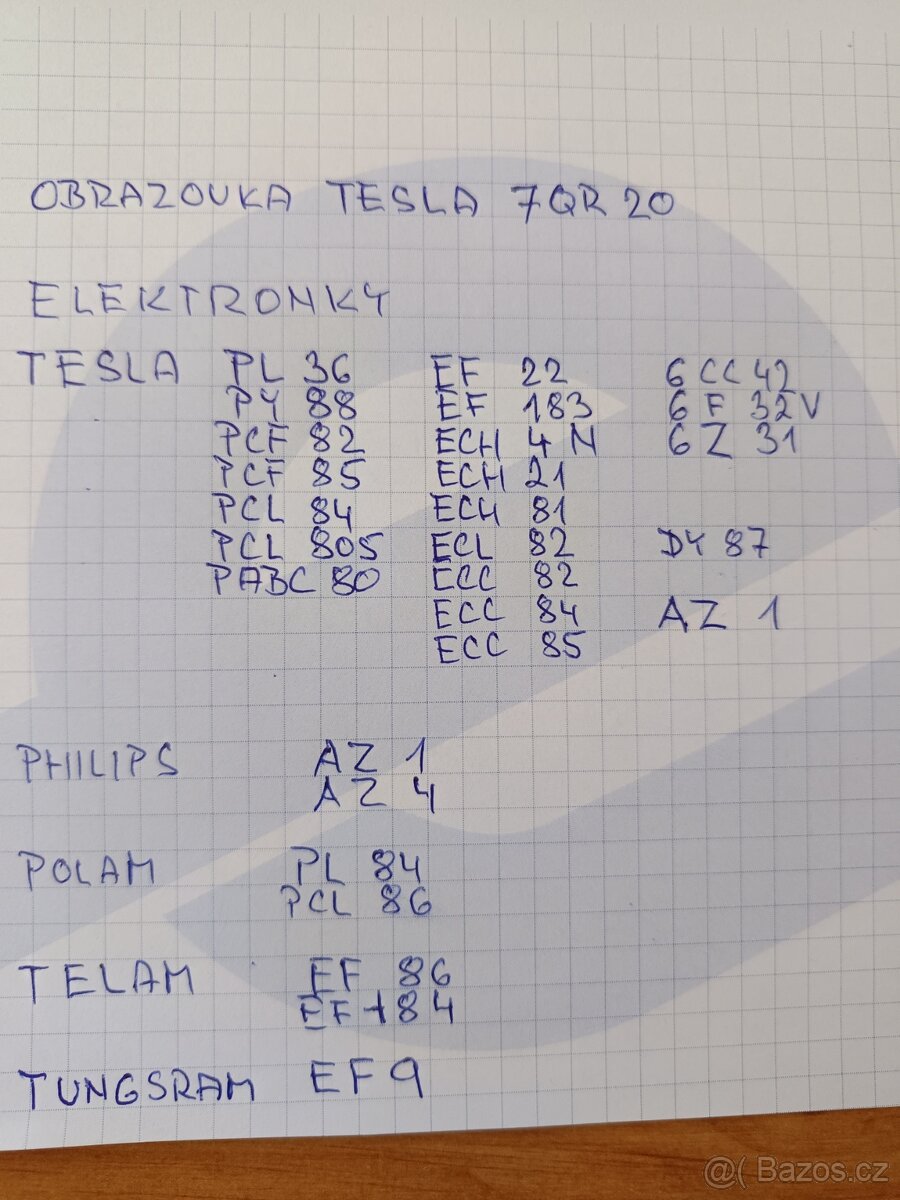 OBRAZOVKA TESLA 7QR 20
ELEKTRONKY
TESLA PL 36 EF 22 6 CC 42
PY 88 EF 183 6 F 32V
PCF 82 ECH 4 N 6 Z 31
PCF 85 ECH 21
PCL 84 ECH 81
PCL 805 ECL 82 DY 87
PABC 80 ECC 82
ECC 84 AZ 1
ECC 85
PHILIPS AZ 1
AZ 4
POLAM PL 84
PCL 86
TELAM EF 86
EF 184
TUNGSRAM EF 9
@( Bazos.cz